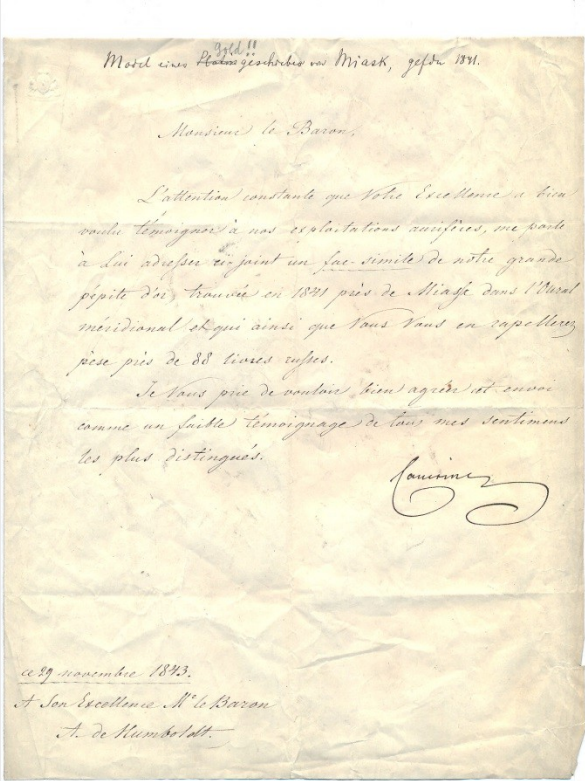 Gold!!
Model eines Platin geschiebes von Miask, gefdn 1841.
Monsieur le Baron.
L'attention constante que Votre Excellence a bien
voulu témoigner à nos exploitations aurifères, me porte
à Lui adresser ci-joint un fac-simile de notre grande
pépite d'or, trouvée en 1841 près de Miasse dans l'Oural
méridional et qui ainsi que Vous Vous en rapellerez
pèse près de 88 livres russes.
Je Vous prie de vouloir bien agréer cet envoi
comme un faible témoignage de tous mes sentimens
les plus distingués.
ce 29 novembre 1843.
A Son Excellence Mr le Baron
A. de Humboldt.